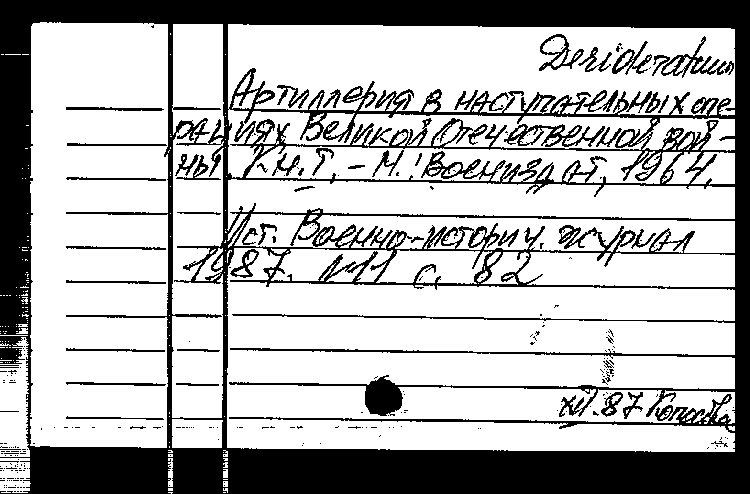 Desideratum
Артиллерия в наступательных опе-
рациях Великой Отечественной вой-
ны. Кн. 1. – М.: Воениздат, 1964.
Ист. Военно-историч. журнал
1987. №11 с. 82
XII.87